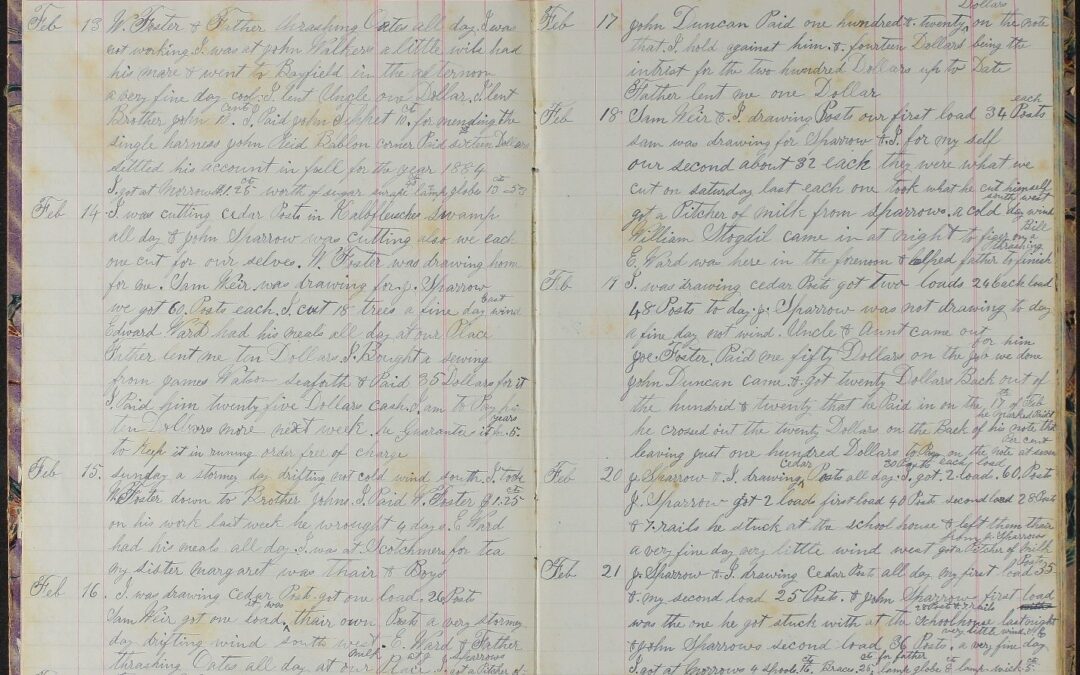 Feb 13 W. Foster & Father thrashing Oates all day I was
not working I was at John Walkers a little wife had
his mare & went to Bayfield in the afternoon
a very fine day cool. I lent Uncle one Dollar. I lent
Brother John 10 cents. I Paid John 10 ct. for mending the
single harness John Reid Bablon corner Paid sixteen Dollars
settled his account in full for the year 1884
I got at Morrows $1.25 ct worth of sugar lamp globe
Feb 14 I was cutting cedar Posts in Kalbfleischs Swamp
all day & John Sparrow was cutting also we each
one cut for our selves. W. Foster was drawing home
for me. Sam Weir was drawing for J. Sparrow
we got 60 Posts each. I cut 18 trees a fine day East wind
Edward Ward had his meals all day at our Place
Father lent me ten Dollars. I Bought a sewing
from James Watson Seaforth & Paid 35 Dollars for it
I Paid him twenty five Dollars cash. I am to Pay him
ten Dollars more next week. he Guarantee it for 5 years
to Keep it in running order free of charge
Feb 15. sunday a stormey day drifting not cold wind south. I took
W Foster down to Brother Johns. I Paid W. Foster $1.25 ct
on his work last week he wrought 4 days. E Ward
had his meals all day I was at Scotchmers for tea
my sister margaret was thair & Boys
Feb 16. I was drawing cedar Posts got one load. 26 Posts
Sam Weir got one load it was thair own Posts a very stormey
day drifting wind south west. E. Ward & Father
thrashing Oates all day at our Place
Feb 17 John Duncan Paid one hundred & twenty Dollars on the note
that I hold against him. & fourteen Dollars being the
intrist for the two hundred Dollars up to Date
Father lent me one Dollar
Feb 18 Sam Weir & I drawing Posts our first load 34 Posts each
sam was drawing for Sparrow & I for my self
our second about 32 each they were what we
cut on saturday last each one took what he cut himself
got a Pitcher of milk from Sparrows. a cold day south west wind
William Stogdil came in at night to Bill
E Ward was here in the forenoon & helped father to finish thrashing
Feb 19 I was drawing cedar Posts got two loads 24 each load
48 Posts to day. J. Sparrow was not drawing to day
a fine day not wind. Uncle & Aunt came out
Joe. Foster Paid me fifty Dollars on the job we done for him
John Duncan came & got twenty Dollars Back out of
the hundred & twenty that he Paid in on the 17 th of Feb
he crossed out the twenty Dollars on the Back of his note
leaving just one hundred Dollars to Pay on the note at seven Per cent
Feb 20 J. Sparrow & I drawing cedar Posts all day I got 2 loads. 60 Posts 30 Posts each load
J. Sparrow got 2 loads first load 40 Posts second load 28 Posts
& 7 rails he stuck at the school house & left them thair
a very fine day very little wind west got a Pitcher of milk from J. Sparrow
Feb 21 J. Sparrow & I drawing cedar Posts all day my first load 35 Posts
& my second load 25 Posts. & John Sparrow first load
was the one he got stuck with at the schoolhouse last night 28 Posts & 7 rails
& John Sparrows second load 36 Posts. a very fine day very little wind
I got at Morrows 4 spools Braces for father lamp globe & lamp wick 5 ct